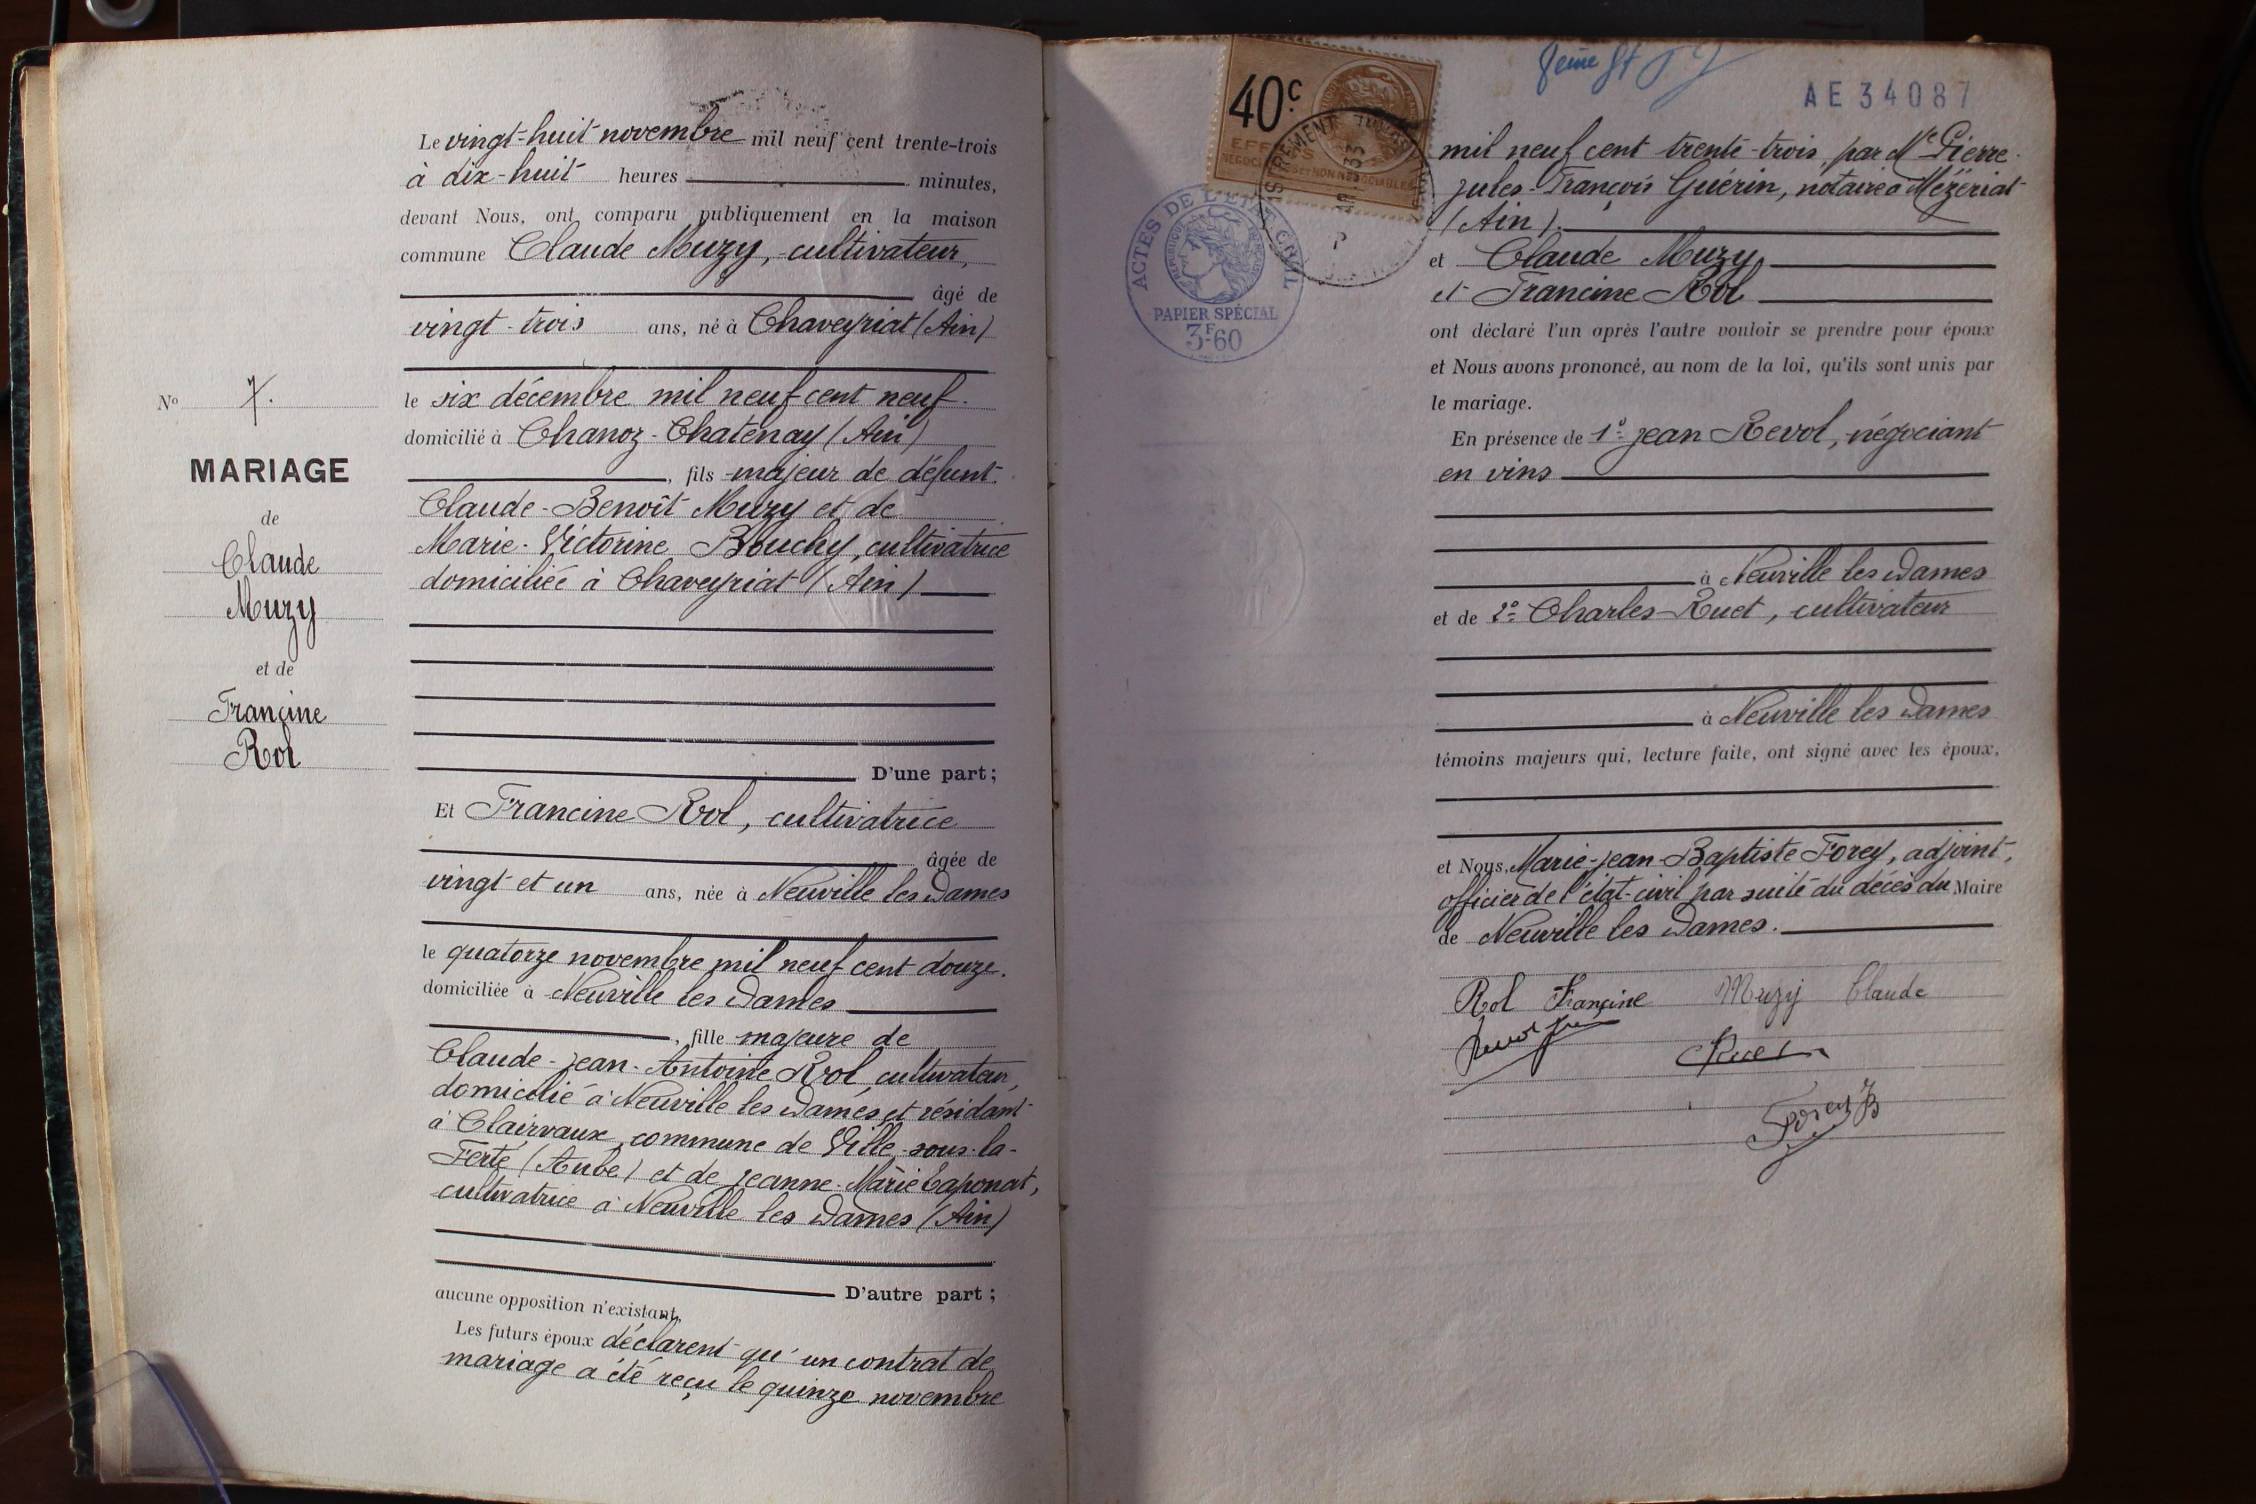 Le vingt-huit novembre mil neuf cent trente-trois
à dix-huit heures minutes,
devant Nous, ont comparu publiquement en la maison
commune Claude Muzy, cultivateur,
âgé de
vingt-trois ans, né à Chaveyriat (Ain)
le six décembre mil neuf cent neuf.
domicilié à Chanoz-Chatenay (Ain)
, fils majeur de défunt
Claude-Benoît Muzy et de
Marie-Victorine Bouchy, cultivatrice
domiciliée à Chaveyriat (Ain)
D'une part;
Nº 7.
MARIAGE
de
Claude
Muzy
et de
Francine
Rol
Et Francine Rol, cultivatrice
âgée de
vingt et un ans, née à Neuville les Dames
le quatorze novembre mil neuf cent douze.
domiciliée à Neuville les Dames
, fille majeure de
Claude-Jean-Antoine Rol, cultivateur,
domicilié à Neuville les Dames et résidant
à Clairvaux, commune de Ville-sous-la-
Ferté (Aube) et de Jeanne-Marie Caponat,
cultivatrice à Neuville les Dames (Ain)
D'autre part;
aucune opposition n'existant,
Les futurs époux déclarent qu'un contrat de
mariage a été reçu le quinze novembre
40c.
EFFETS
NÉGOCIABLES ET NON NÉGOCIABLES
ACTES DE L'ETAT CIVIL
PAPIER SPÉCIAL
3F60
8ème ft
AE 34087
mil neuf cent trente-trois, par Me Pierre-
Jules-François Guérin, notaire à Mézériat
(Ain).
et Claude Muzy,
et Francine Rol
ont déclaré l'un après l'autre vouloir se prendre pour époux
et Nous avons prononcé, au nom de la loi, qu'ils sont unis par
le mariage.
En présence de 1º Jean Revol, négociant
en vins
à Neuville les Dames
et de 2º Charles Ruet, cultivateur
à Neuville les Dames
témoins majeurs qui, lecture faite, ont signé avec les époux,
et Nous, Marie-Jean-Baptiste Forey, adjoint,
officier de l'état-civil par suite du décès du Maire
de Neuville les Dames.
Rol Francine Muzy Claude
Revol Jean
CRuet
Forey JB